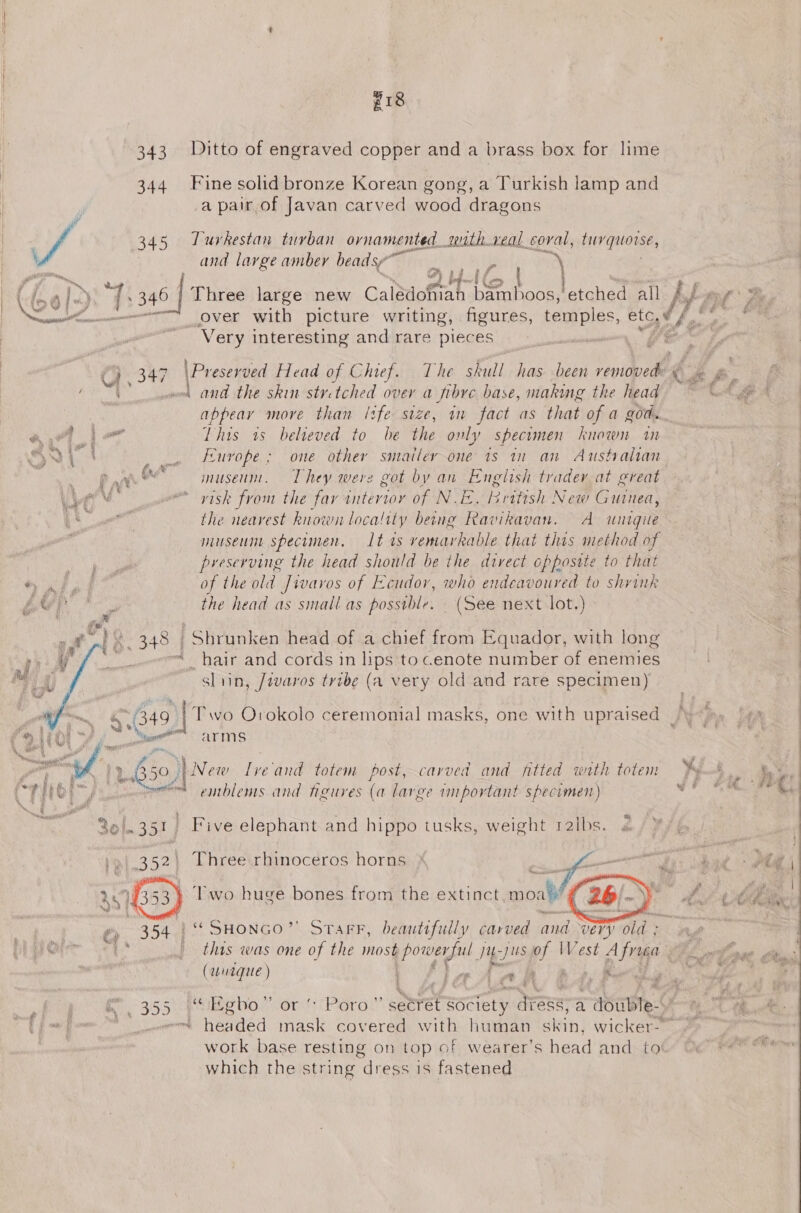 18
343 Ditto of engraved copper and a brass box for lime
344 Fine solid bronze Korean gong, a Turkish lamp and
a pair of Javan carved wood dragons
345 Turkestan turban ornamented with real coral, turquoise,
and large amber beads
346 Three large new Caledonian bamboos, etched all
over with picture writing, figures, temples, etc,
Very interesting and rare pieces
347 Preserved Head of Chief. The skull has been removed
and the skin stretched over a fibre base, making the head
appear more than life size, in fact as that of a god.
This is believed to be the only specimen known in
Europe; one other smaller one is in an Australian
museum. They were got by an English trader at great
risk from the far interior of N.E. British New Guinea,
the nearest known locality being Ravikavan. A unique
museum specimen. It is remarkable that this method of
preserving the head should be the direct opposite to that
of the old Jivaros of Ecudor, who endeavoured to shrink
the head as small as possible. (See next lot.)
348 Shrunken head of a chief from Equador, with long
hair and cords in lips to cenote number of enemies
slain, Jivaros tribe (a very old and rare specimen)
349 Two Orokolo ceremonial masks, one with upraised
arms
350 New Ireland totem post, carved and fitted with totem
emblems and figures (a large important specimen)
351 Five elephant and hippo tusks, weight 12lbs.
352 Three rhinoceros horns
353 Two huge bones from the extinct moa 26/-
354 "SHONGO" STAFF, beautifully carved and very old;
this was one of the most powerful ju-jus of West Africa
(unique)
355 "Egbo" or "Poro" secret society dress, a double-
headed mask covered with human skin, wicker-
work base resting on top of wearer's head and to
which the string dress is fastened